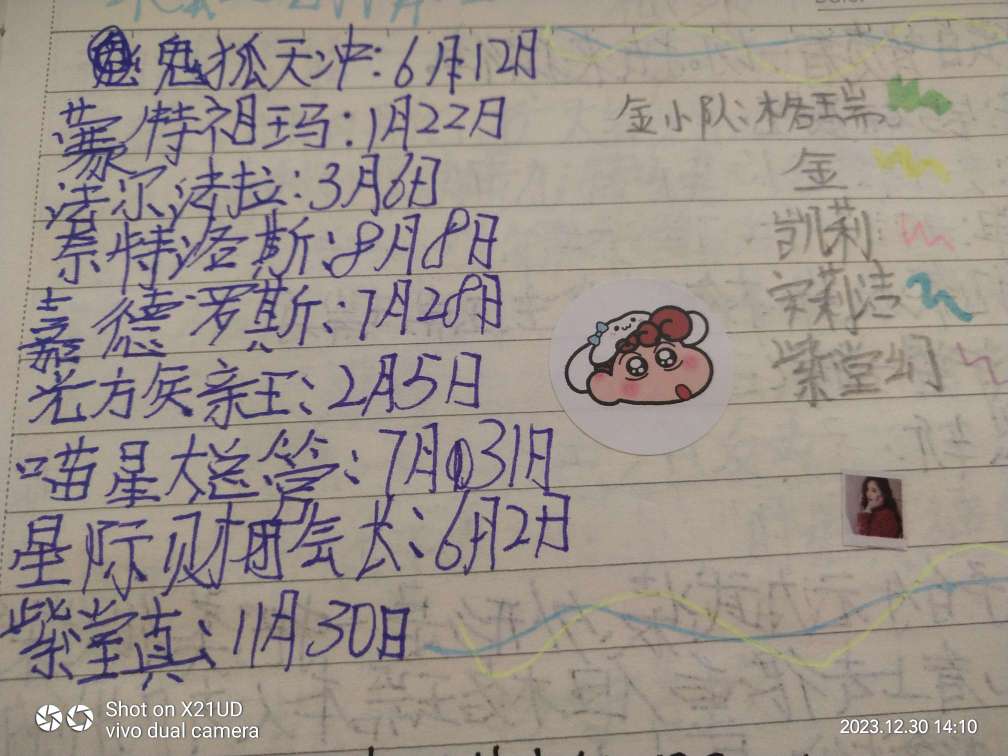 鬼狐天冲:6月12日
蒙特祖玛:1月22日
法尔法拉:3月6日
奈特洛斯:8月8日
嘉德罗斯:7月28日
光方侯亲王:2月5日
喵星大总管:7月31日
星际财团会长:6月2日
紫堂真:11月30日
金小队:格瑞
金
凯莉
安莉洁
紫堂幻
Shot on X21UD
vivo dual camera
2023.12.30 14:10